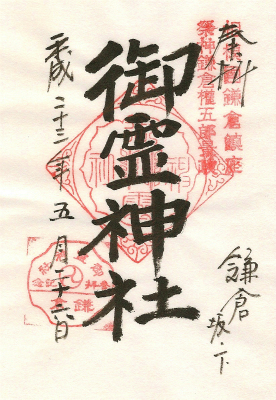 奉拝
相模國鎌倉鎮座
祭神鎌倉権五郎景政
鎌倉
坂ノ下
御霊神社
平成二十三年五月二十六日